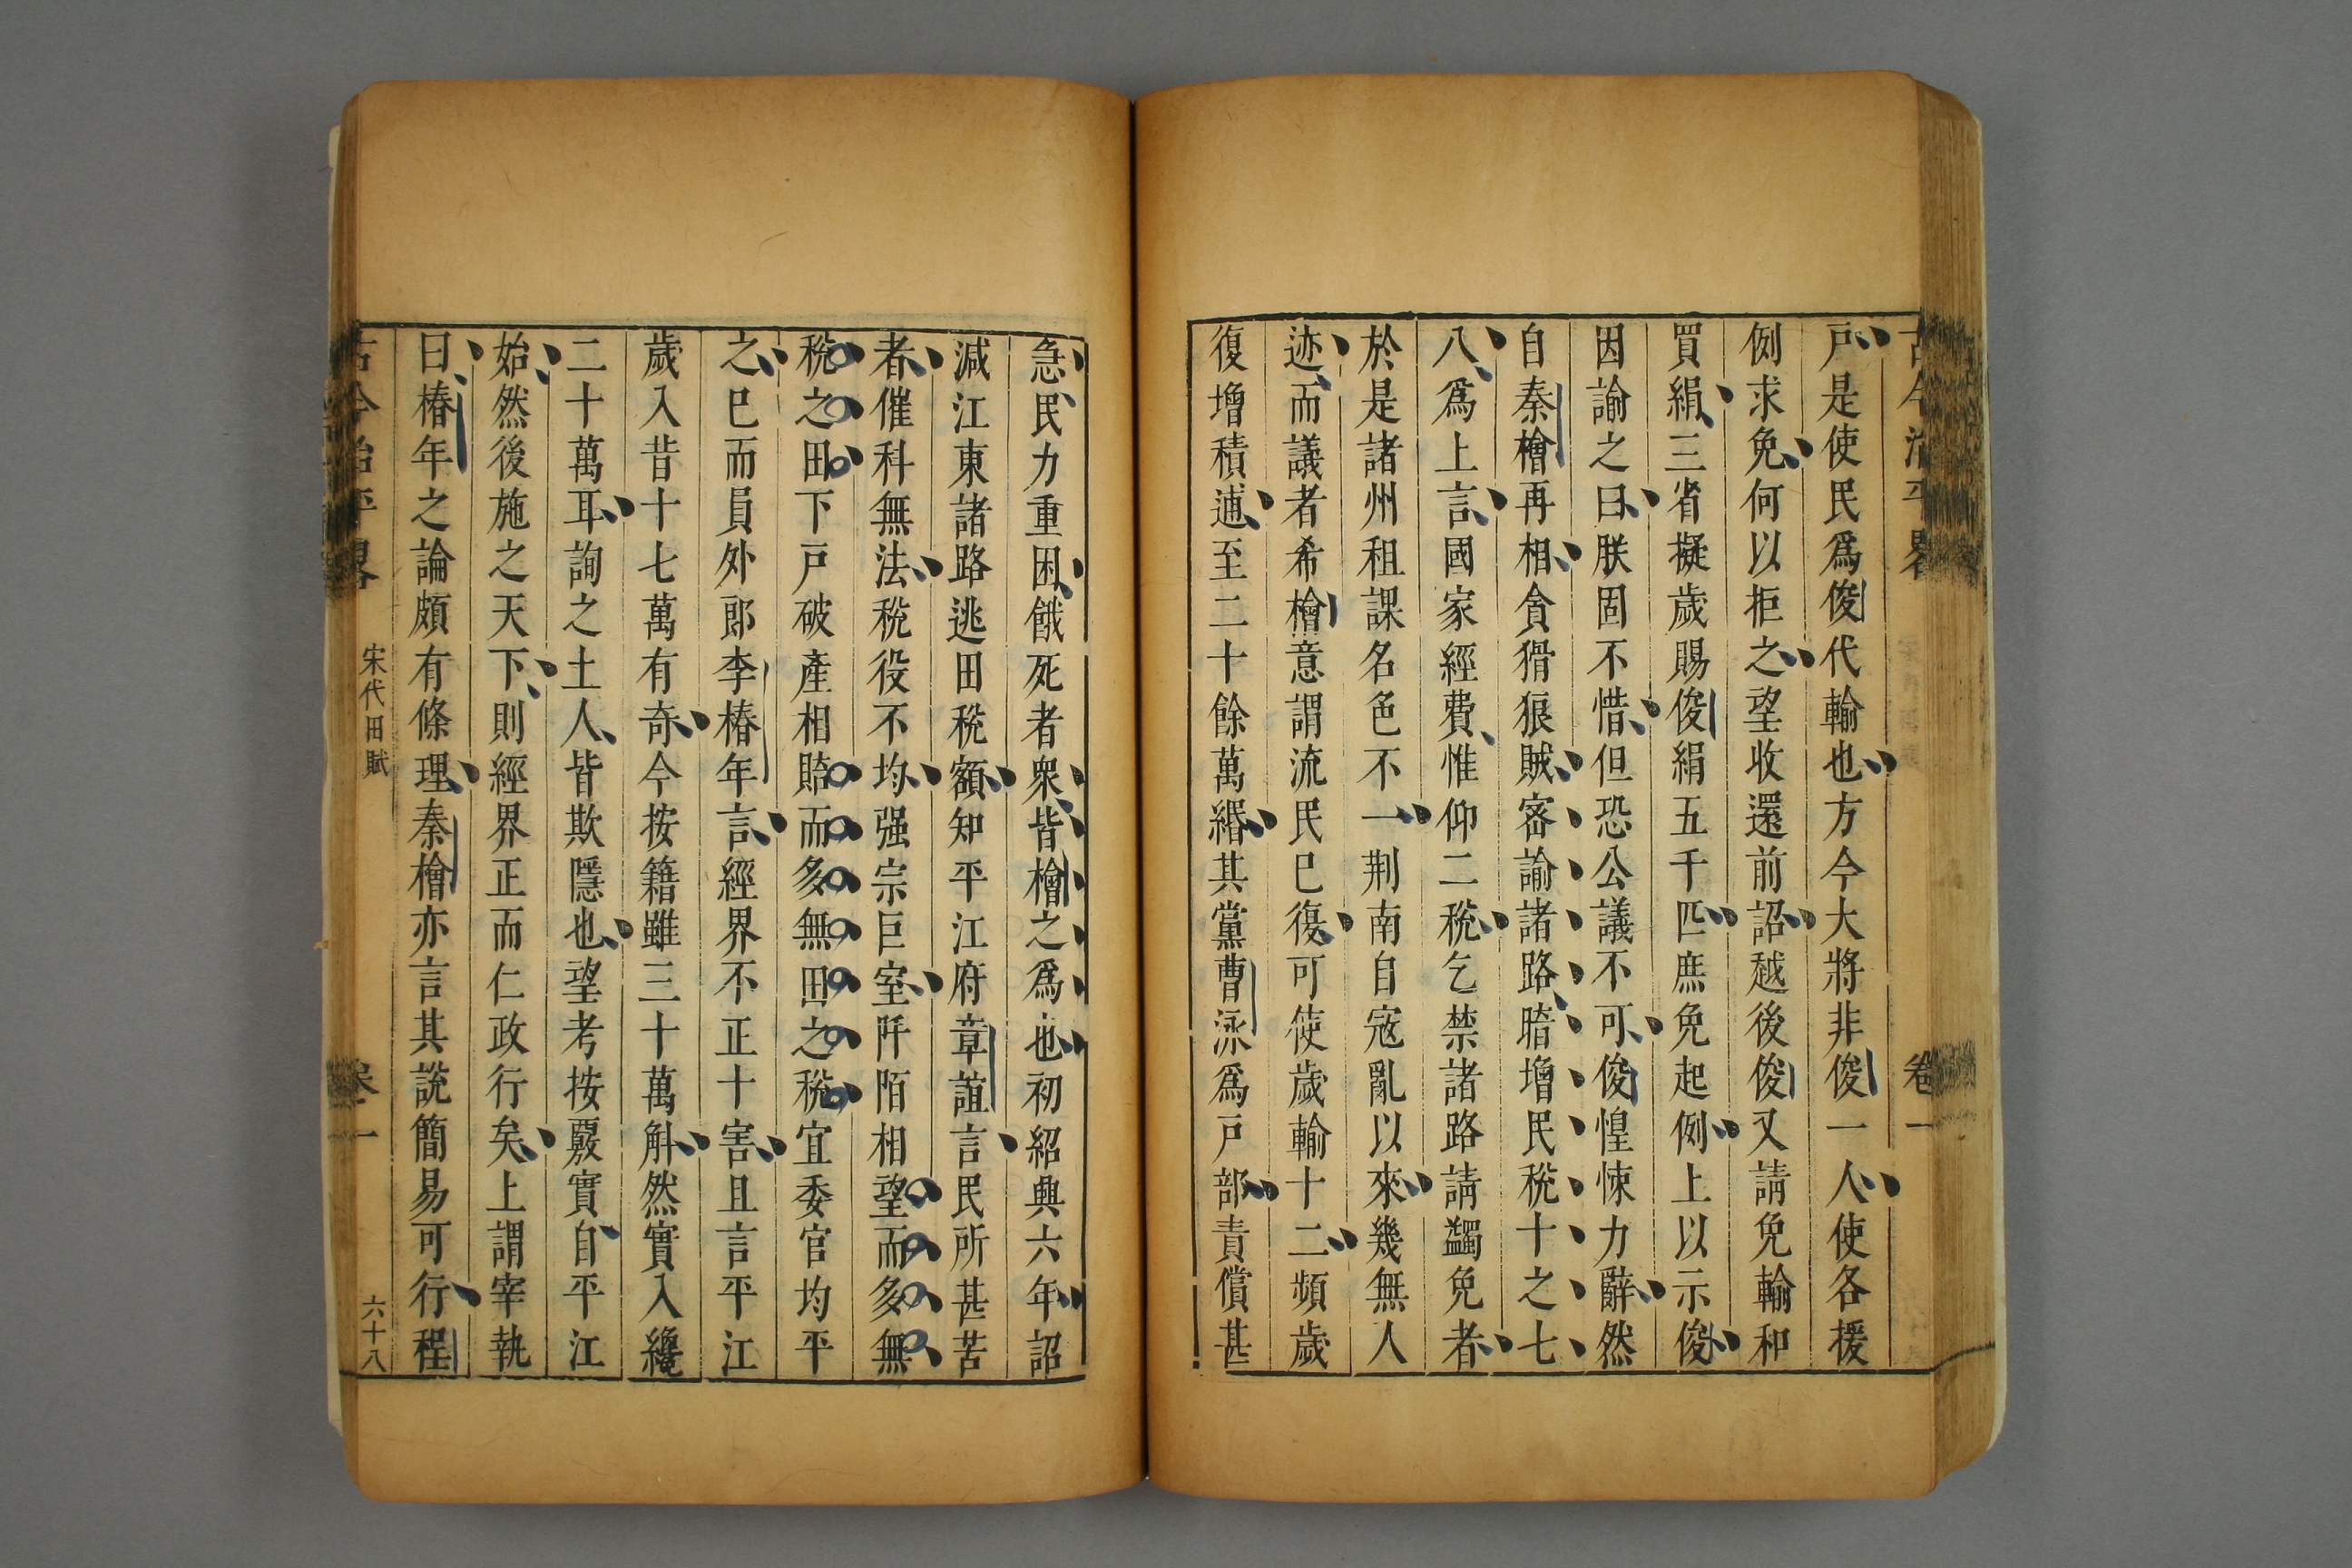 古今治平畧
卷一
戸是使民爲俊代輸也方今大將非俊一人使各援
例求免何以拒之望收還前詔越後俊又請免輸和
買絹三省擬歲賜俊絹五千匹庶免起例上以示俊
因諭之曰朕固不惜但恐公議不可俊惶悚力辭然
自秦檜再相貪猾狠賊密諭諸路暗增民稅十之七
八爲上言國家經費惟仰二稅乞禁諸路請蠲免者
於是諸州租課名色不一荆南自宼亂以來幾無人
迹而議者希檜意謂流民已復可使歲輸十二頻歲
復增積逋至二十餘萬緡其黨曹泳爲戸部責償甚
急民力重困餓死者衆皆檜之爲也初紹興六年詔
減江東諸路逃田稅額知平江府章誼言民所甚苦
者催科無法稅役不均强宗巨室阡陌相望而多無
稅之田下戸破產相賠而多無田之稅宜委官均平
之已而員外郎李椿年言經界不正十害且言平江
歲入昔十七萬有奇今按籍雖三十萬斛然實入纔
二十萬耳詢之土人皆欺隱也望考按覈實自平江
始然後施之天下則經界正而仁政行矣上謂宰執
曰椿年之論頗有條理秦檜亦言其說簡易可行程
古今治平畧
宋代田賦
卷一
六十八